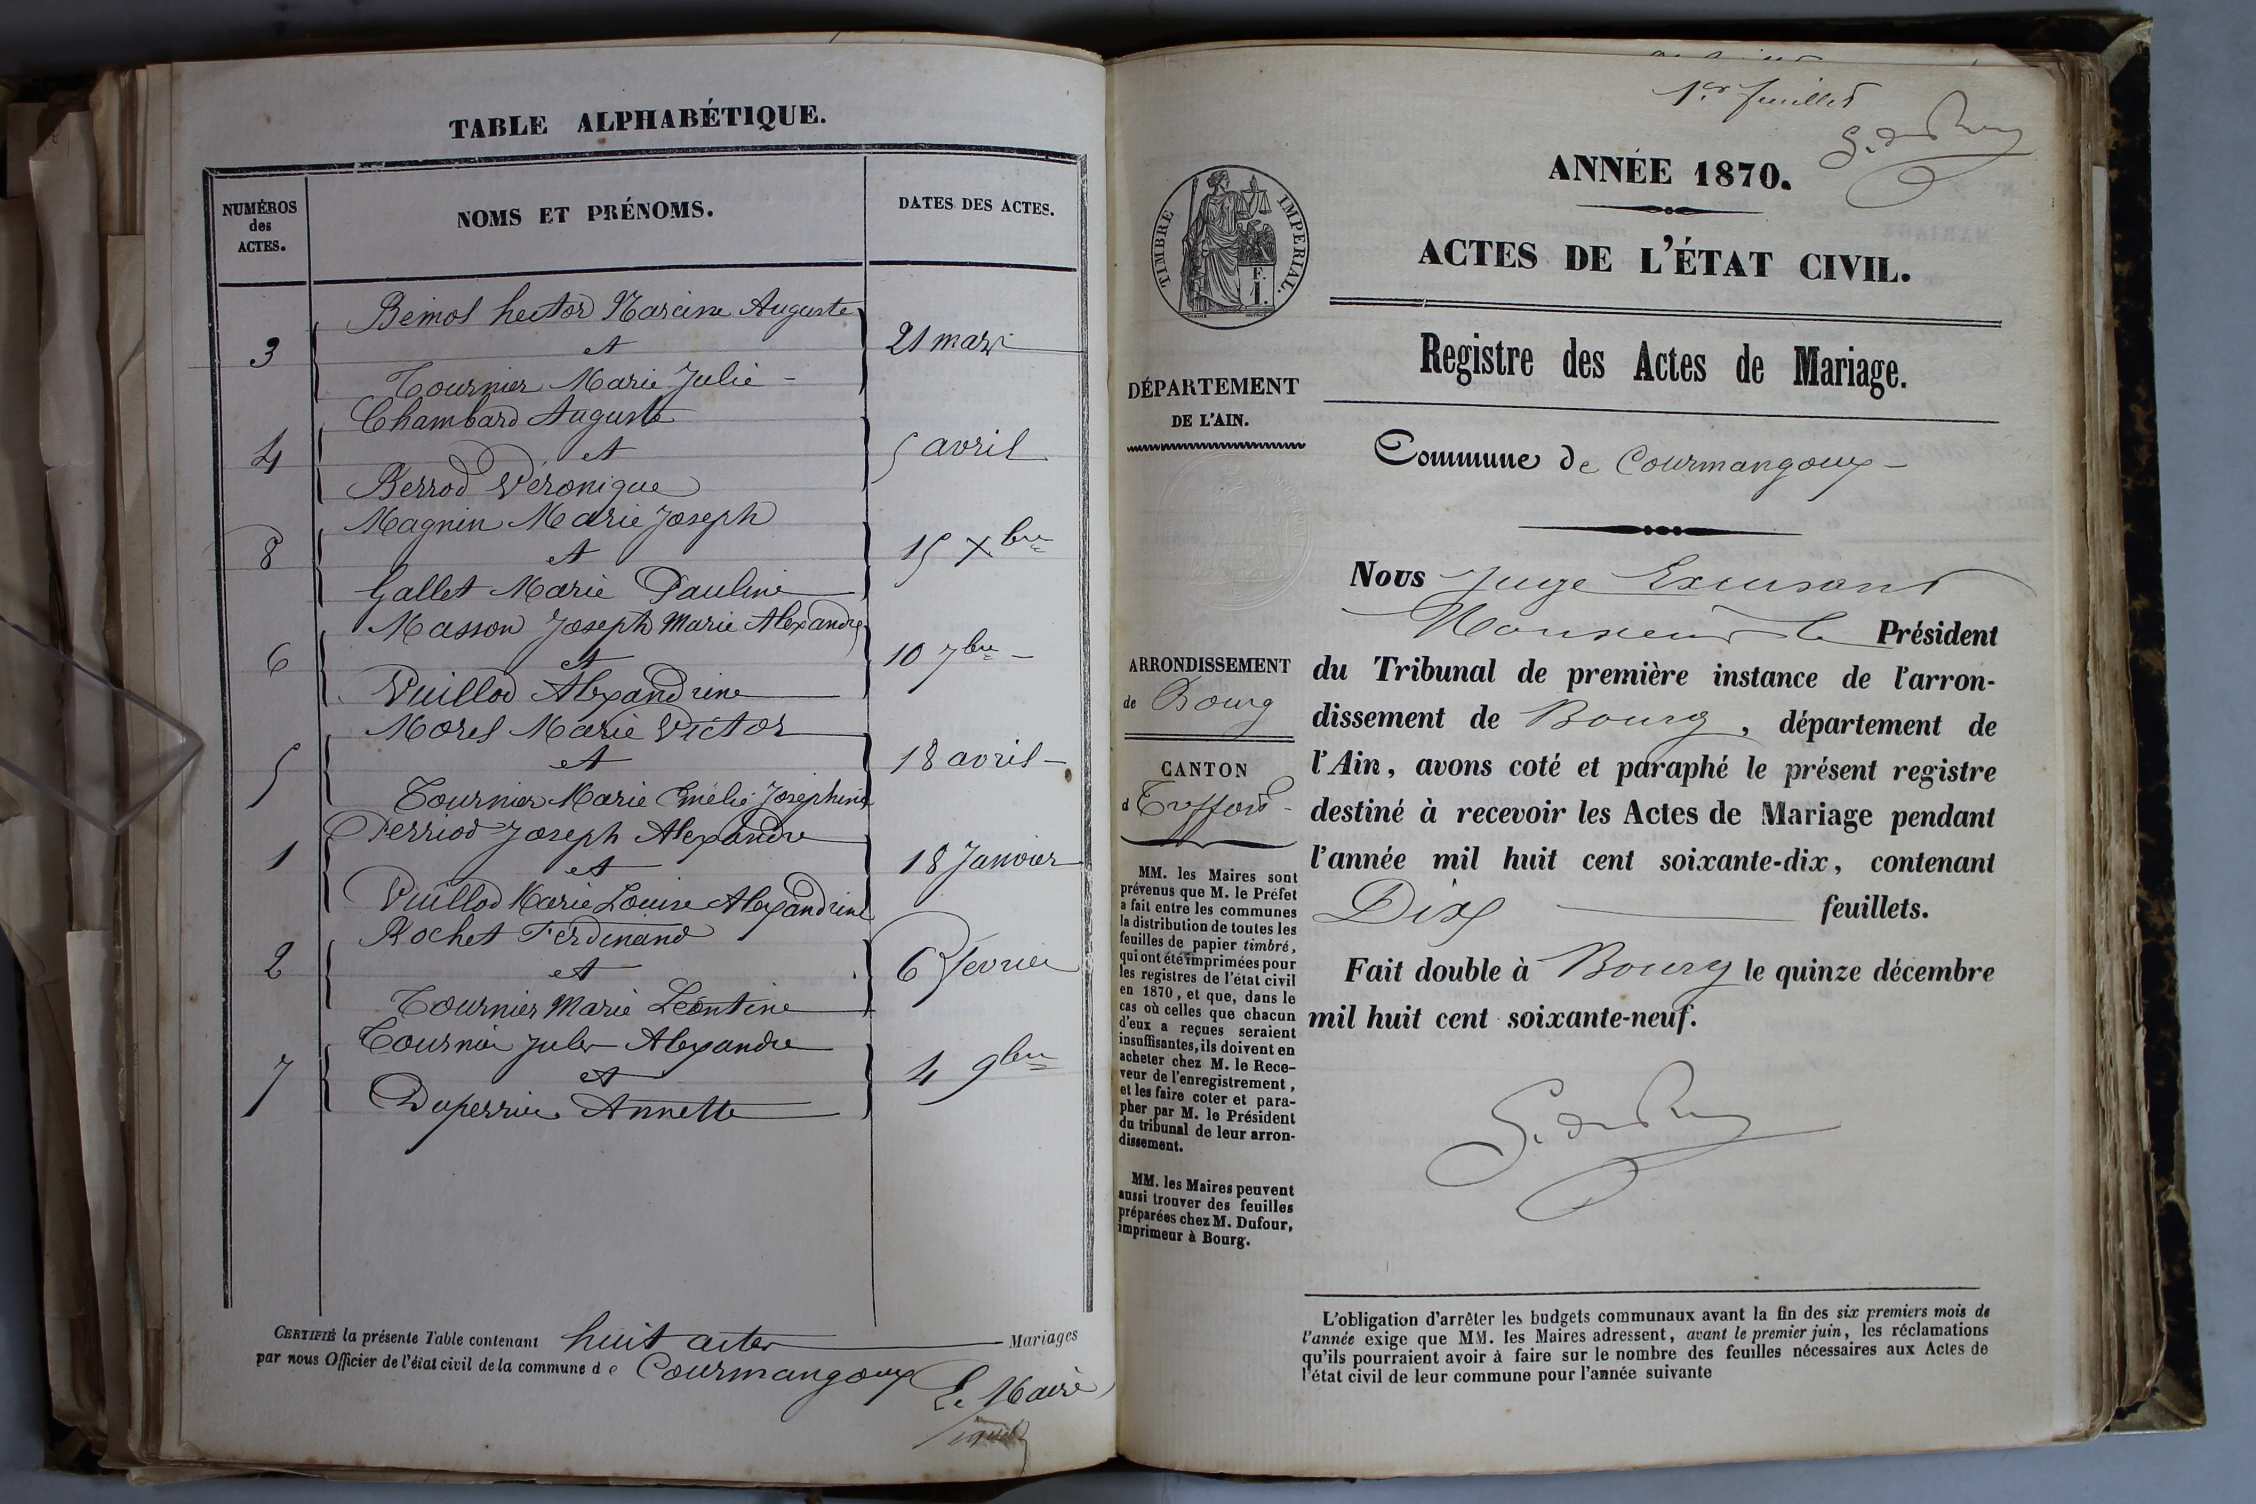 TABLE ALPHABÉTIQUE.
NUMÉROS
des
ACTES.
NOMS ET PRÉNOMS.
DATES DES ACTES.
Auguste
3
et
21 mars
Tournier Marie Julie -
Chambard Auguste
4
et
5 avril
Berrod Véronique
Magnin Marie Joseph
8
et
15 Xbre
Gallet Marie Pauline
Masson Joseph Marie Alexandre
6
et
10 7bre -
Vuillod Alexandrine
Morel Marie Victor
5
et
18 avril -
Tournier Marie Emélie Joséphine
Perriod Joseph Alexandre
1
et
18 Janvier
Vuillod Marie Louise Alexandrine
Rochet Ferdinand
2
et
6 février
Tournier Marie Léontine
Tournier Jules Alexandre
7
et
4 9bre
Duperrier Annette
CERTIFIÉ la présente Table contenant huit actes Mariages
par nous Officier de l'état civil de la commune de Courmangoux
Le Maire
1er feuillet
ANNÉE 1870.
ACTES DE L'ÉTAT CIVIL.
TIMBRE IMPERIAL.
F.
1.
Registre des Actes de Mariage.
DÉPARTEMENT
DE L'AIN.
Commune de Courmangoux -
Nous Juge
Monsieur le Président
ARRONDISSEMENT
de Bourg
CANTON
d Treffort -
du Tribunal de première instance de l'arron-
dissement de Bourg, département de
l'Ain, avons coté et paraphé le présent registre
destiné à recevoir les Actes de Mariage pendant
l'année mil huit cent soixante-dix, contenant
Dix feuillets.
Fait double à Bourg le quinze décembre
mil huit cent soixante-neuf.
MM. les Maires sont
prévenus que M. le Préfet
a fait entre les communes
la distribution de toutes les
feuilles de papier timbré,
qui ont été imprimées pour
les registres de l'état civil
en 1870, et que, dans le
cas où celles que chacun
d'eux a reçues seraient
insuffisantes, ils doivent en
acheter chez M. le Rece-
veur de l'enregistrement,
et les faire coter et para-
pher par M. le Président
du tribunal de leur arron-
dissement.
MM. les Maires peuvent
aussi trouver des feuilles
préparées chez M. Dufour,
imprimeur à Bourg.
L'obligation d'arrêter les budgets communaux avant la fin des six premiers mois de
l'année exige que MM. les Maires adressent, avant le premier juin, les réclamations
qu'ils pourraient avoir à faire sur le nombre des feuilles nécessaires aux Actes de
l'état civil de leur commune pour l'année suivante